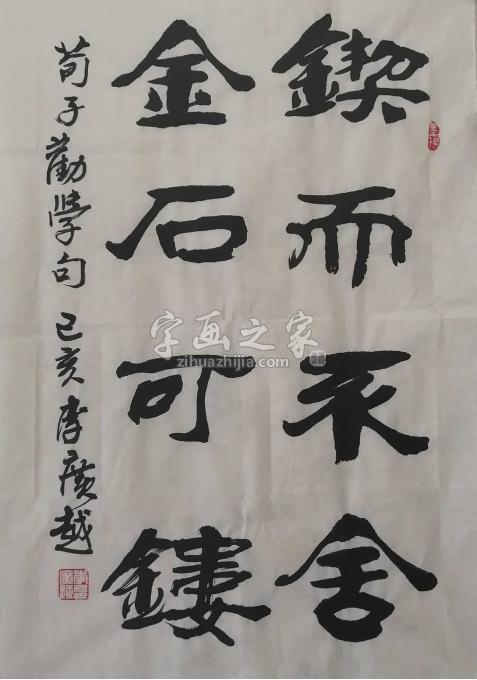 鍥而不舍
金石可鏤
荀子勸學句 己亥 李廣越
字画之家
zihuazhijia.com